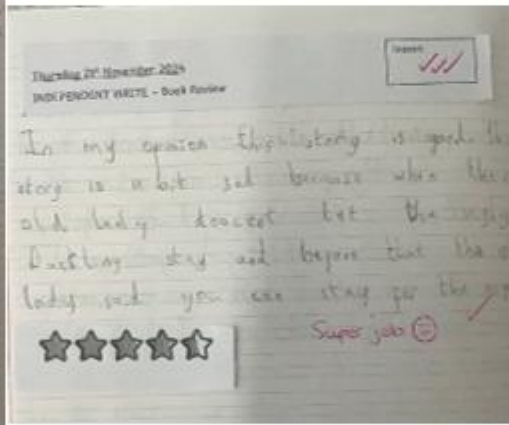 Thursday 21st November 2024
INDEPENDENT WRITE – Book Review
In my opinion this story is good. the
story is a bit sad because when the
old lady let the ugly
Duckling stay and before that the
lady said you can stay for the
Super job